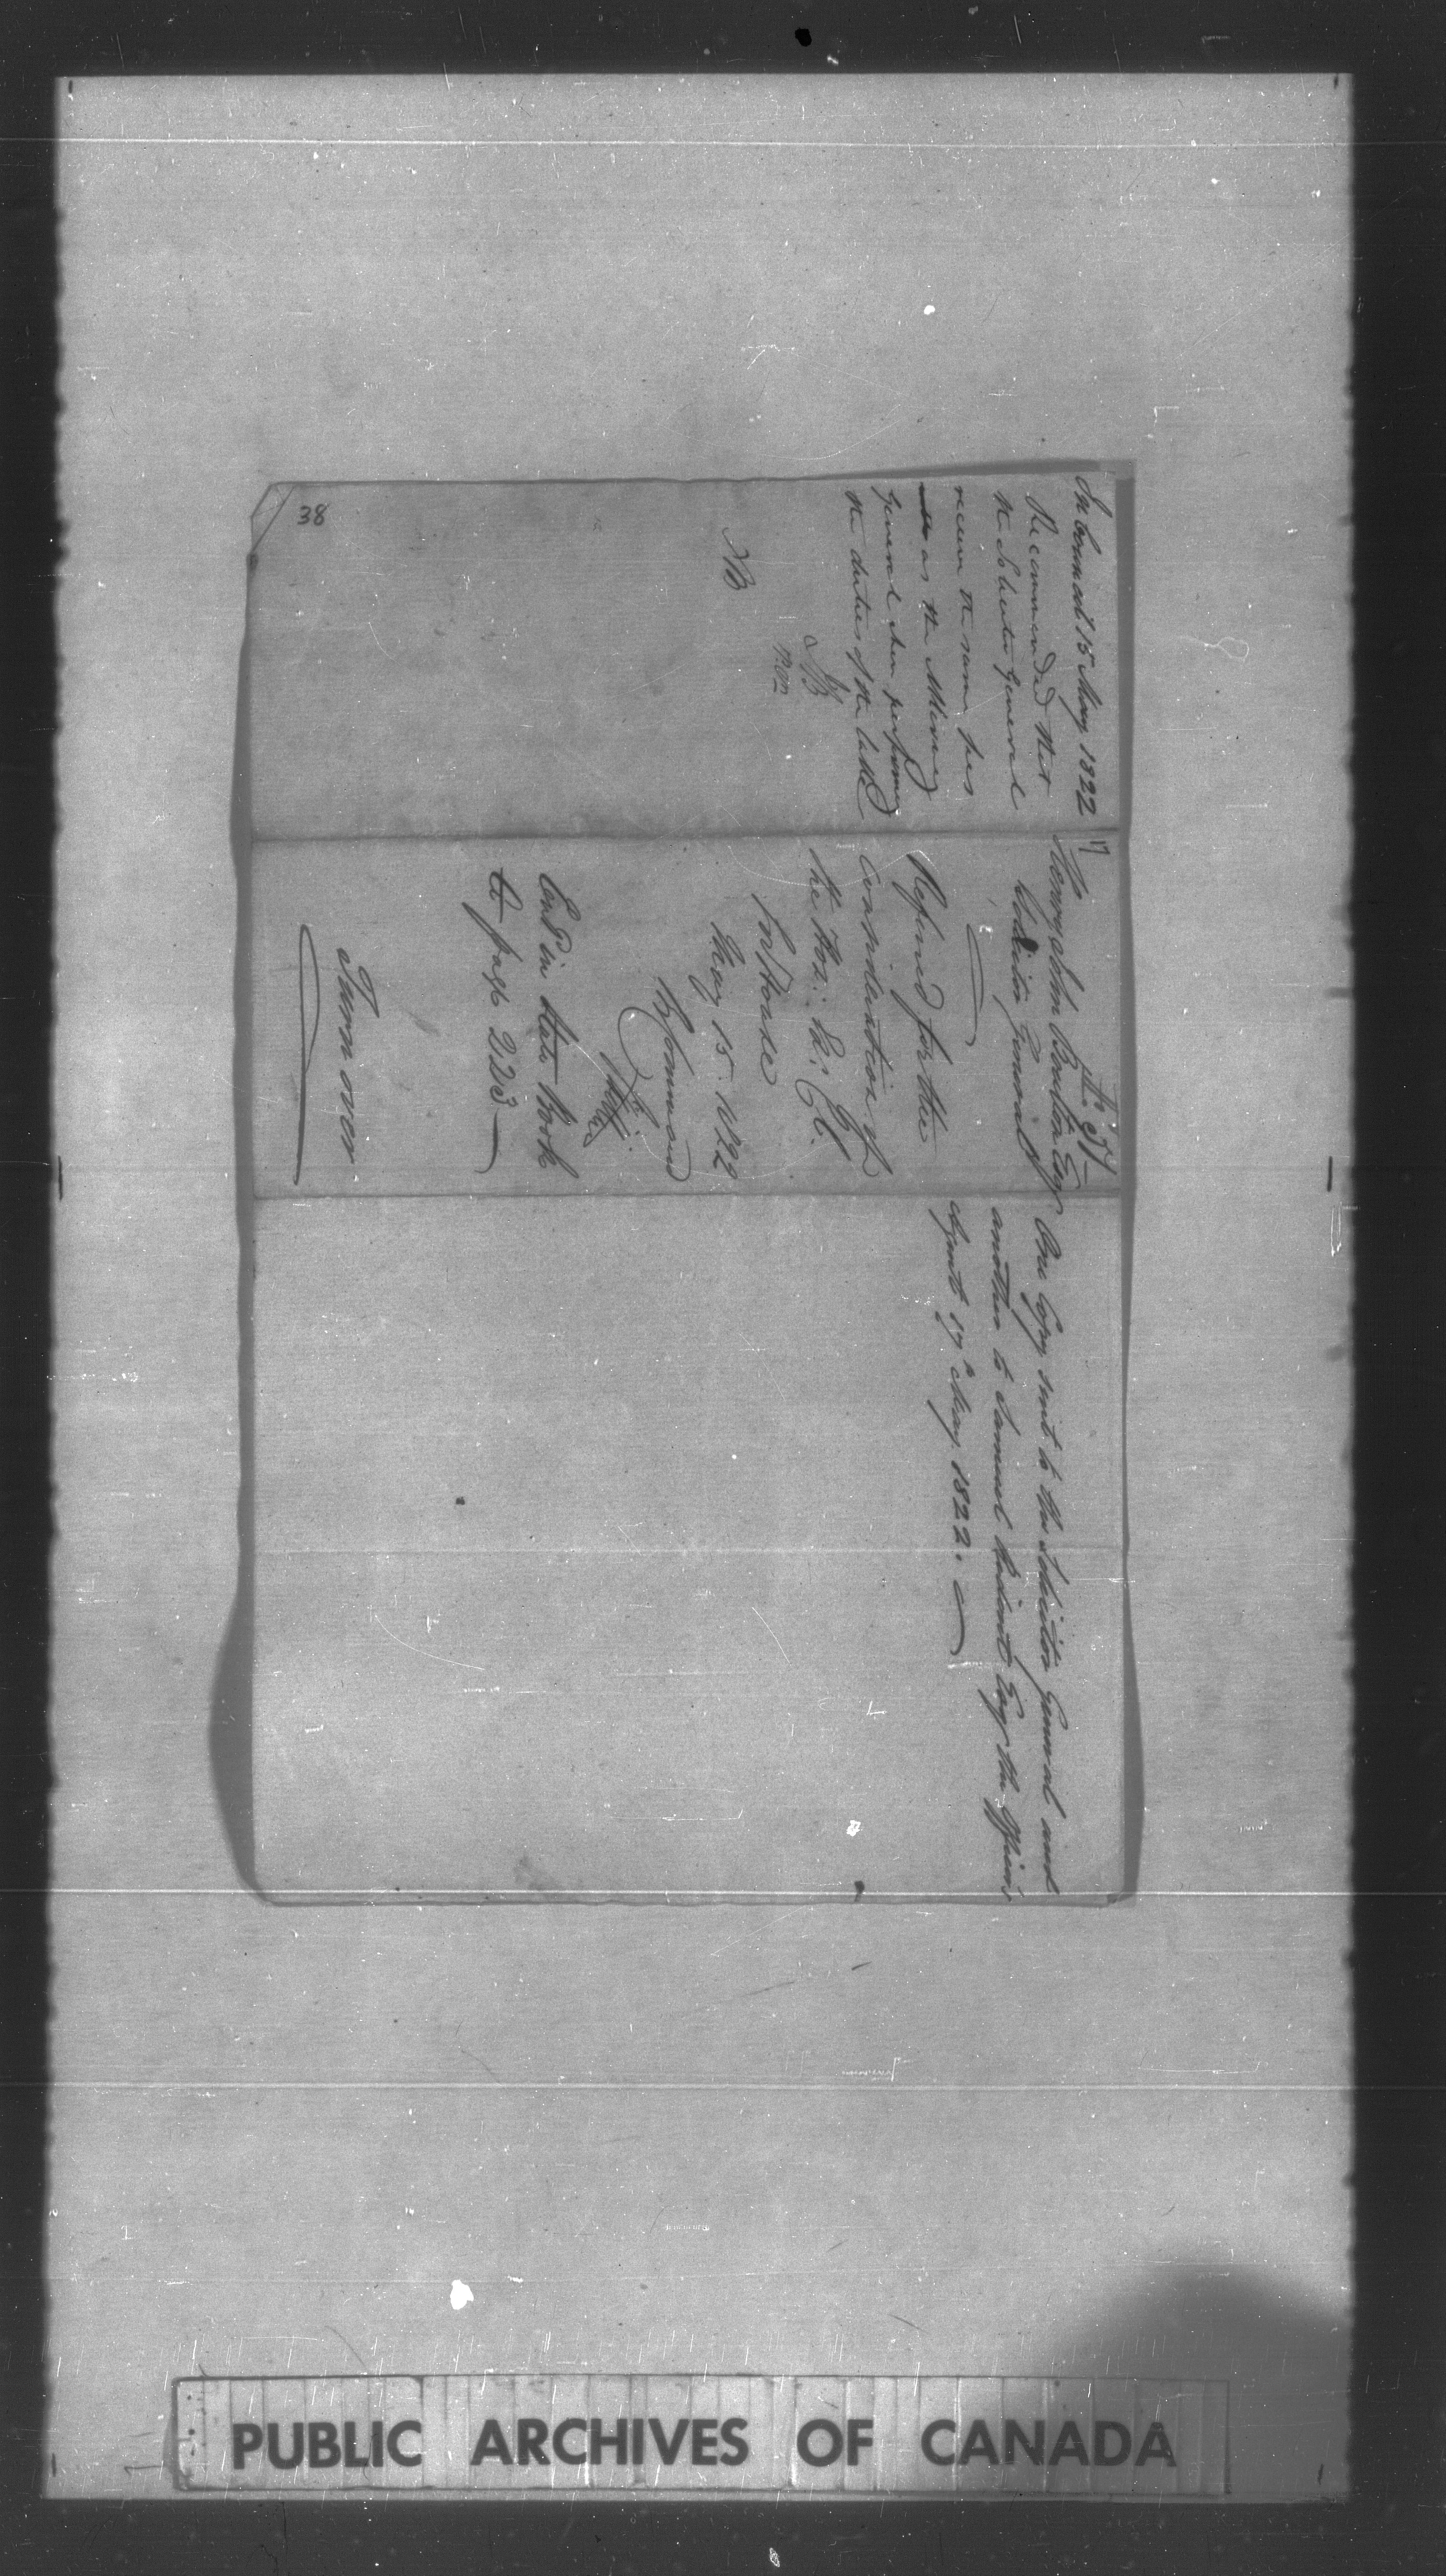 In Council 15 May 1822
Recommended that
the Solicitor General
receive the same fees
as the Attorney
General when performing
the duties of the latter
WB
P.C.
WB
17
No 37
Henry John Boulton Esqr
Solicitor General
Referred for the
consideration of
the Hon: Ex: C.
Gov House
May 15. 1822
By Command
Ent'd in State Book
page 223
Turn over
One Copy sent to the Solicitor General and
another to Samuel Ridout Esqr the Officers
Agent 17th May 1822.
38
PUBLIC ARCHIVES OF CANADA